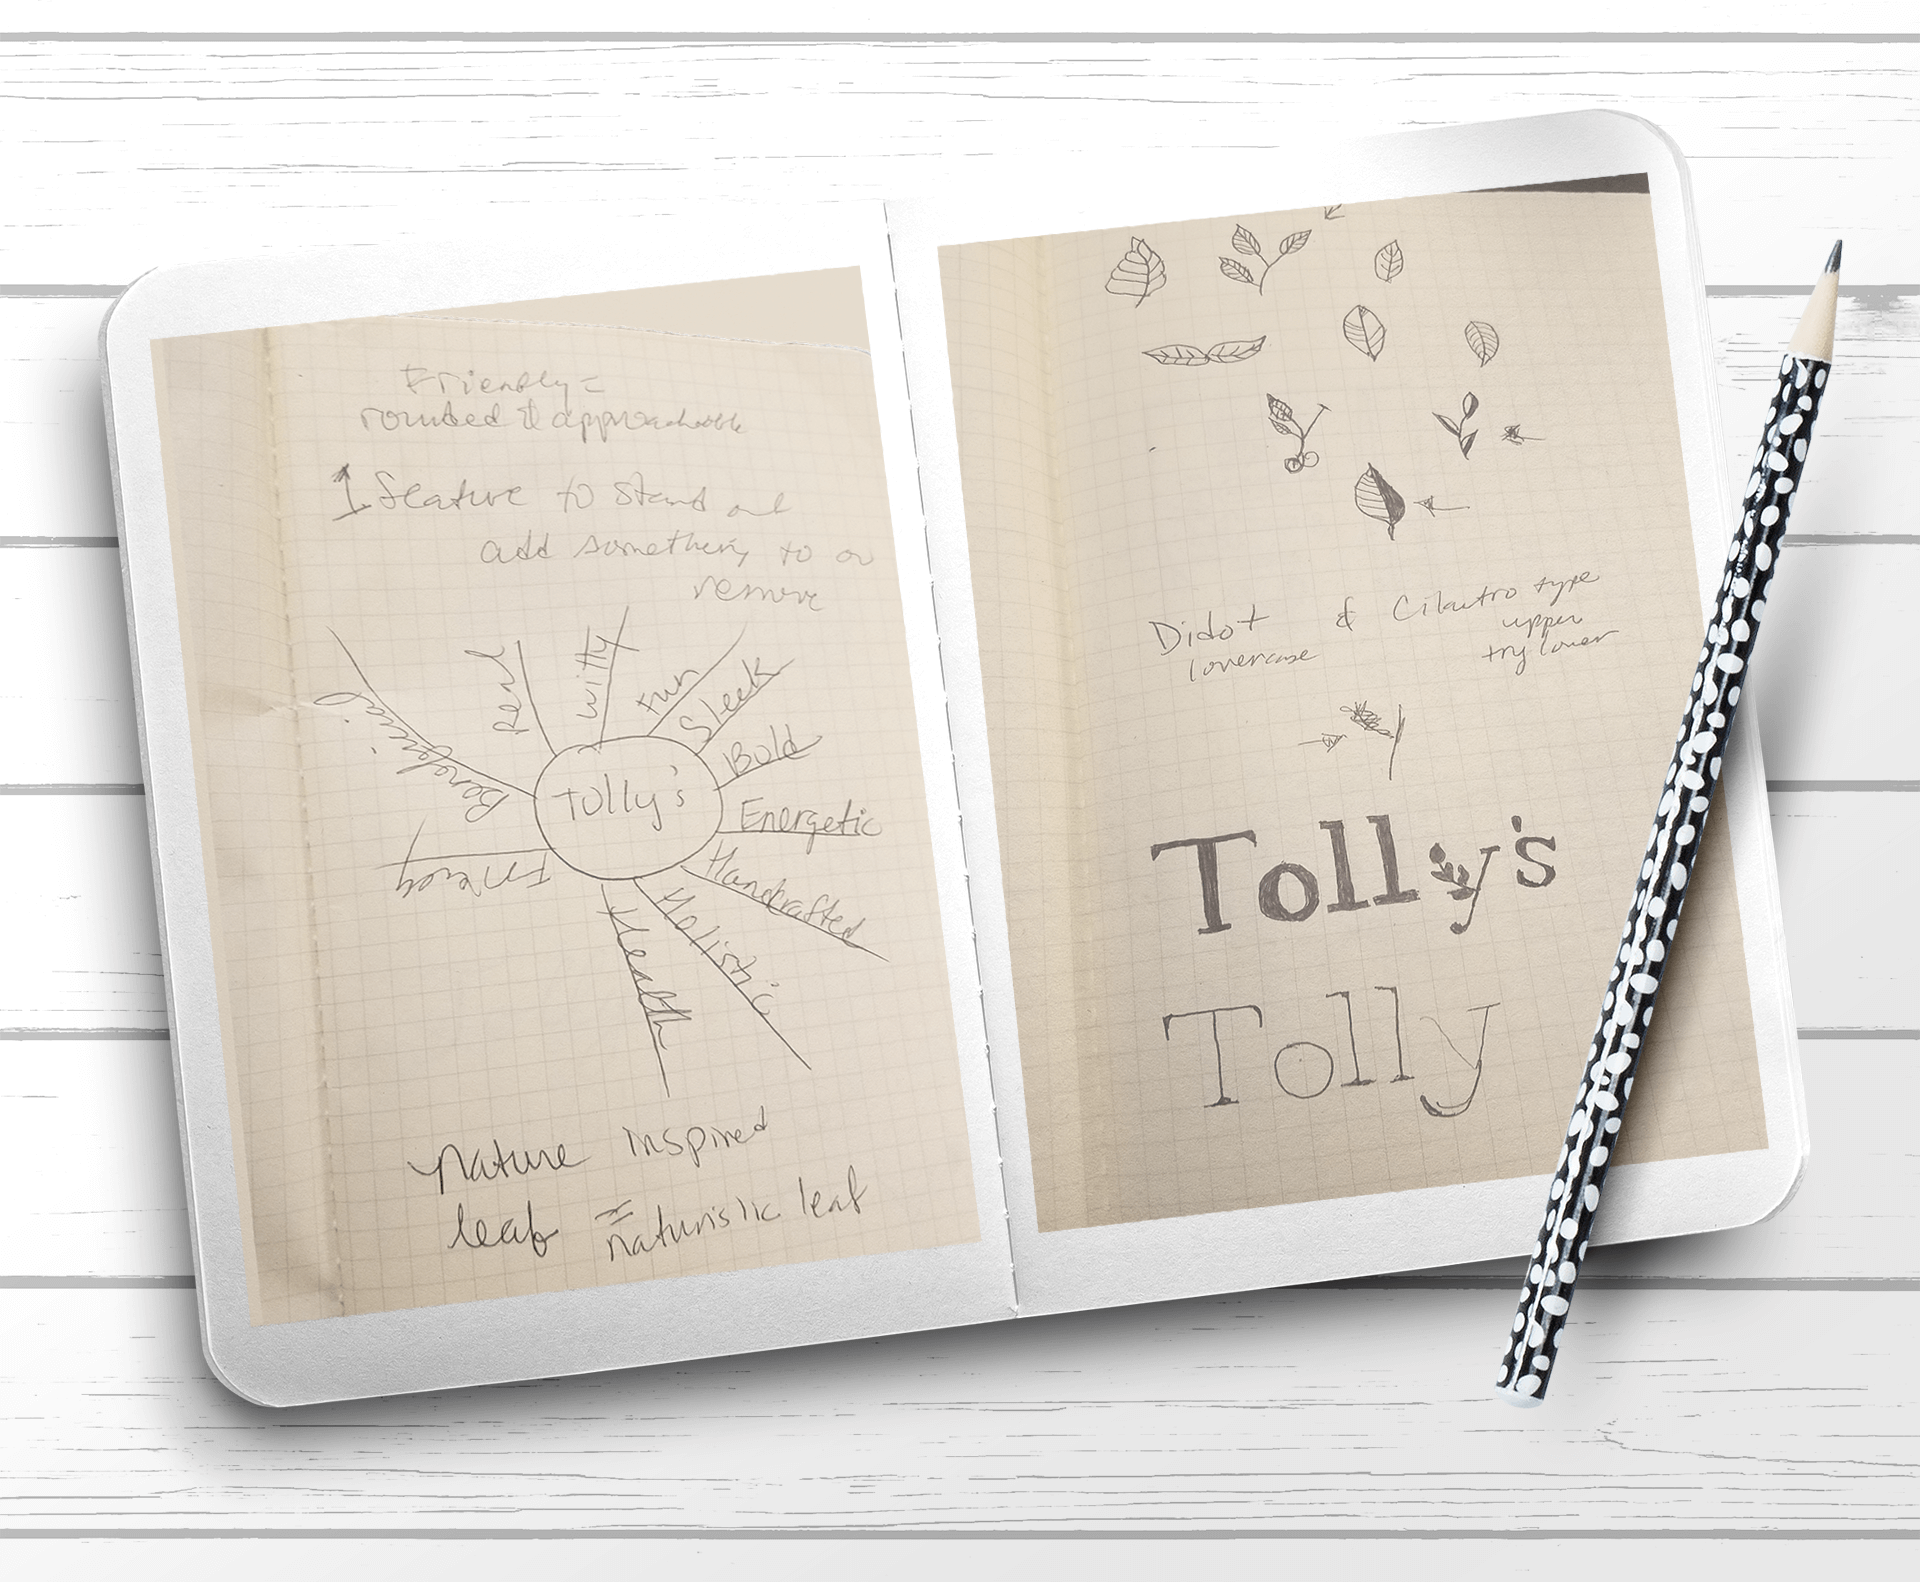 Friendly =
rounded & approachable
1 feature to stand out
add something to or
remove
Beneficial
Real
Witty
Fun
Sleek
Bold
Energetic
Handcrafted
Holistic
Health
Tolly's
nature inspired
leaf = naturistic leaf
Didot & Cilantro type
lowercase upper
try lower
Tolly's
Tolly